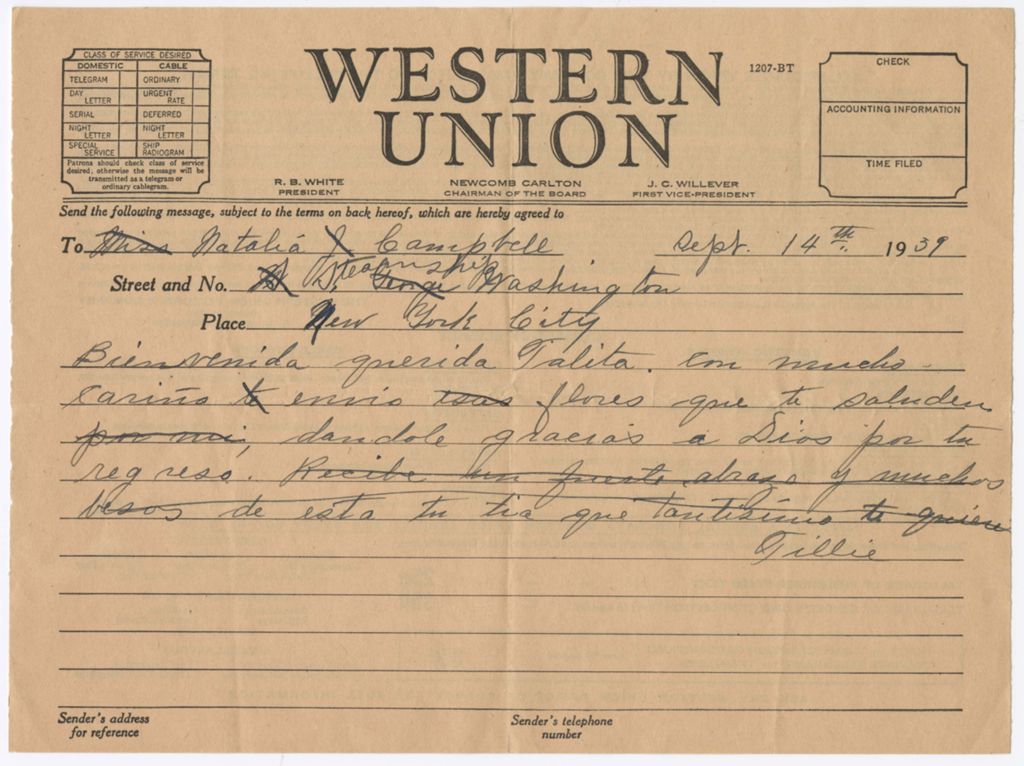 CLASS OF SERVICE DESIRED
DOMESTIC CABLE
TELEGRAM ORDINARY
DAY LETTER URGENT RATE
SERIAL DEFERRED
NIGHT LETTER NIGHT LETTER
SPECIAL SERVICE SHIP RADIOGRAM
Patrons should check class of service
desired; otherwise the message will be
transmitted as a telegram or
ordinary cablegram.
WESTERN
UNION
1207-BT
CHECK
ACCOUNTING INFORMATION
TIME FILED
R. B. WHITE
PRESIDENT
NEWCOMB CARLTON
CHAIRMAN OF THE BOARD
J. C. WILLEVER
FIRST VICE-PRESIDENT
Send the following message, subject to the terms on back hereof, which are hereby agreed to
To Miss Natalia J. Campbell Sept. 14th. 1939
Street and No. S. Steamship George Washington
Place New York City
Bienvenida querida Talita. con mucho
cariño te envio esas flores que te saluden
por mi, dandole gracias a Dios por tu
regreso. Recibe un fuerte abrazo y muchos
besos de esta tu tia que tantísimo te quiere
Tillie
Sender's address
for reference
Sender's telephone
number